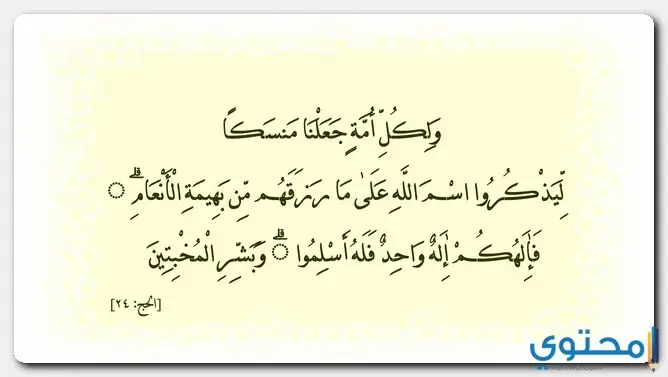 وَلِكُلِّ أُمَّةٍ جَعَلْنَا مَنسَكًا
لِّيَذْكُرُوا اسْمَ اللَّهِ عَلَىٰ مَا رَزَقَهُم مِّن بَهِيمَةِ الْأَنْعَامِ ۗ
فَإِلَٰهُكُمْ إِلَٰهٌ وَاحِدٌ فَلَهُ أَسْلِمُوا ۗ وَبَشِّرِ الْمُخْبِتِينَ
[الحج: ٢٤]
محتوي